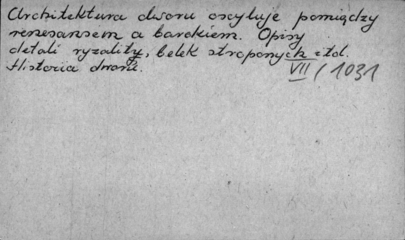 Architektura dworu oscyluje pomiędzy
renesansem a barokiem. Opisy
detali ryzality, belek stropowych itd.
Historia dworu.
VII / 1031